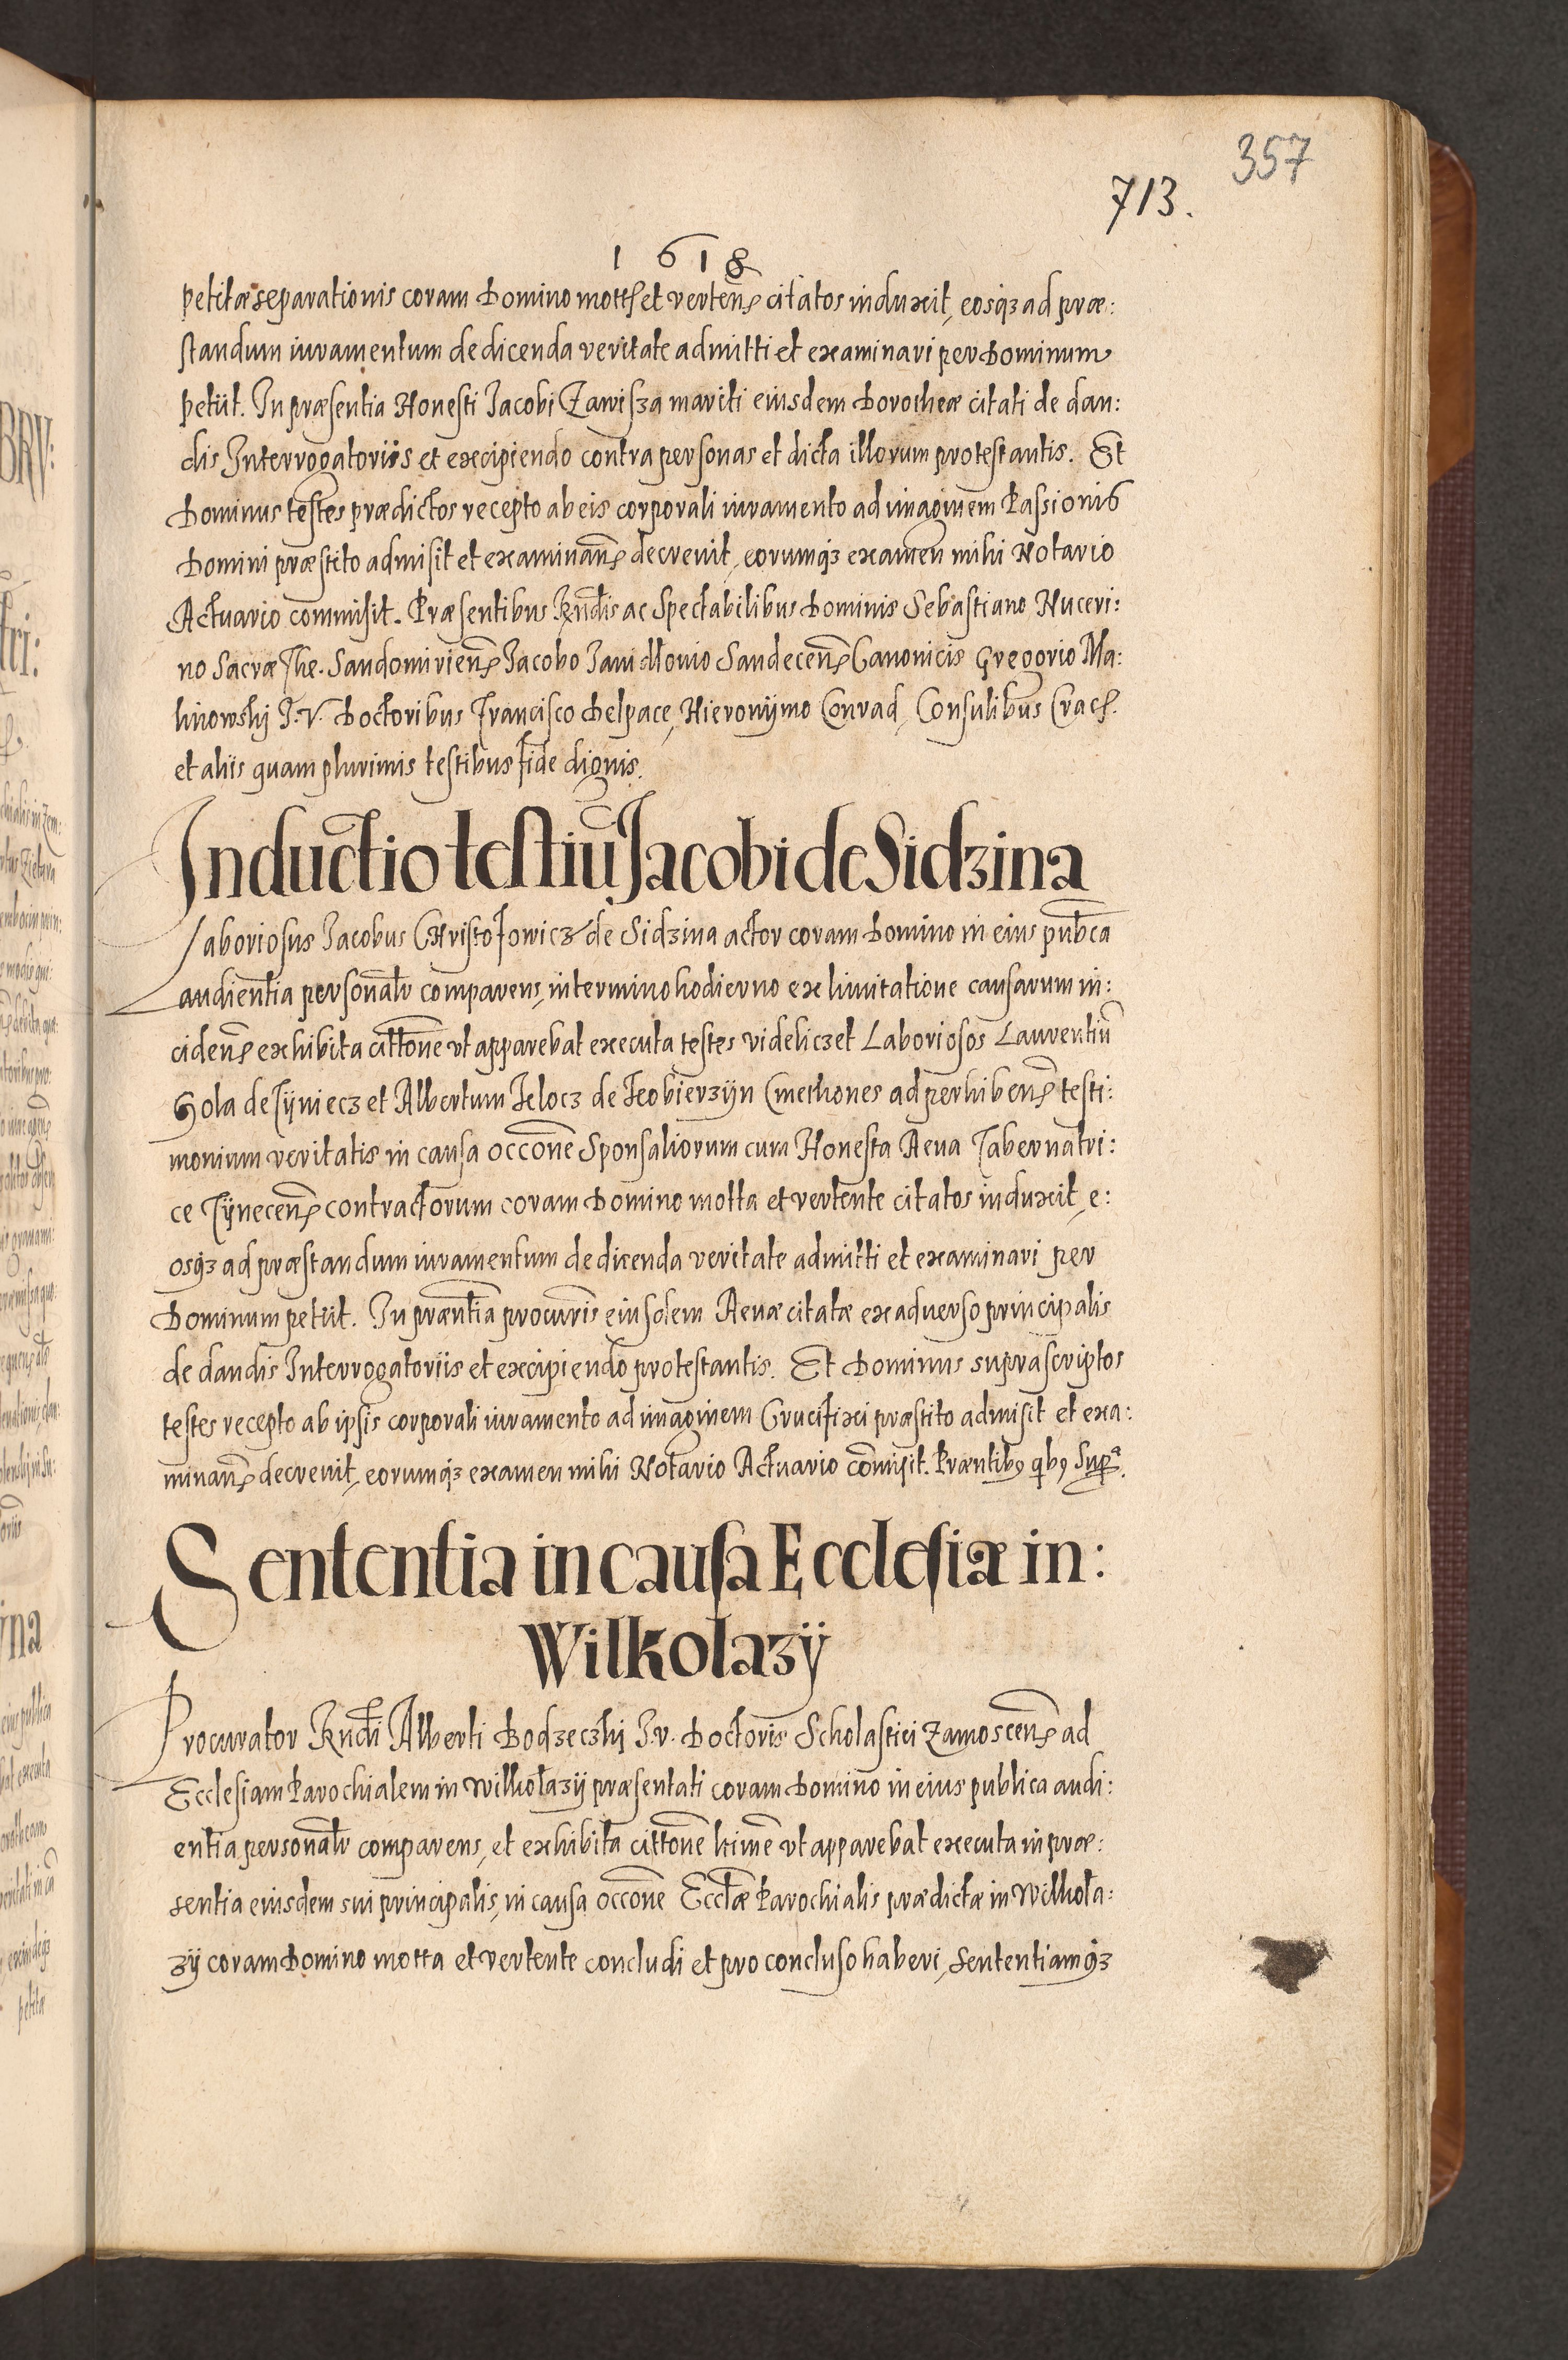 357
713.
1618
petitæ separationis coram Domino mott et verten citatos induxit, eosq3 ad præ:
standum iuramentum de dicenda veritate admitti et examinari per Dominum
petiit. In præsentia Honesti Jacobi Zawisza mariti eiusdem Dorotheæ citati de dan:
dis Interrogatoriis et excipiendo contra personas et dicta illorum protestantis. Et
Dominus testes prædictos recepto ab eis corporali iuramento ad imaginem Passionis
Domini præstito admisit et examinan̄ decrevit, eorumq3 examen mihi Notario
Actuario commisit. Præsentibus Rn̄dis ac Spectabilibus Dominis Sebastiano Nuceri:
no Sacræ The. Sandomirien̄ Jacobo Janidłonio Sandecen̄ Canonicis Gregorio Ma:
linowskij J.V. Doctoribus Francisco Delpace, Hieronÿmo Conrad, Consulibus Crac.
et aliis quam plurimis testibus fide dignis.
Inductio testiū Jacobi de Sidzina
Laboriosus Jacobus Christofowicz de Sidzina actor coram Domino in eius pub̄ca
audientia personalr̄ comparens, in termino hodierno ex limitatione causarum in:
ciden̄ exhibita citt̄one ut apparebat executa testes videliczet Laboriosos Laurentiū
Gola de Tÿniecz et Albertum Jelocz de Jeobierzÿn Cmethones ad perhiben̄ testi:
monium veritatis in causa occ̄one Sponsaliorum cum Honesta Aeua Tabernatri:
ce Tÿnecen̄ contractorum coram Domino motta et vertente citatos induxit, e:
osq3 ad præstandum iuramentum de dicenda veritate admitti et examinari per
Dominum petiit. In præn̄tia procur̄is eiusdem Aeuæ citatæ ex aduerso principalis
de dandis Interrogatoriis et excipiendo protestantis. Et Dominus suprascriptos
testes recepto ab ipsis corporali iuramento ad imaginem Crucifixi præstito admisit et exa:
minan̄ decrevit, eorumq3 examen mihi Notario Actuario com̄isit. Præntib9 qb9 Supª.
Sententia in causa Ecclesiæ in:
Wilkołazÿ
Procurator Rn̄di Alberti Bodzeczkij J.V. Doctoris Scholastici Zamoscen̄ ad
Ecclesiam Parochialem in Wilkołazÿ præsentati coram Domino in eius publica audi:
entia personalr̄ comparens, et exhibita citt̄one ltimē ut apparebat executa in præ:
sentia eiusdem sui principalis, in causa occ̄one Eccl̄æ Parochialis prædictæ in Wilkoła:
zÿ coram Domino motta et vertente concludi et pro concluso haberi, Sententiamq3